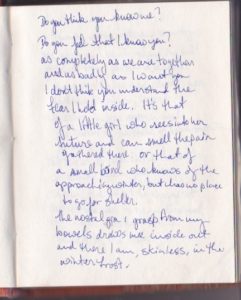 Do you think you know me?
Do you feel that I know you?
as completely as we are together
and as badly as I want you
I don't think you understand the
fear I hold inside. It's that
of a little girl who sees into her
future and can smell the pain
gathered there or that of
a small bird who knows of the
approaching winter, but has no place
to go for shelter.
The nostalgia I grasp from my
bowels draws me inside out
and there I am, skinless, in the
winter frost.